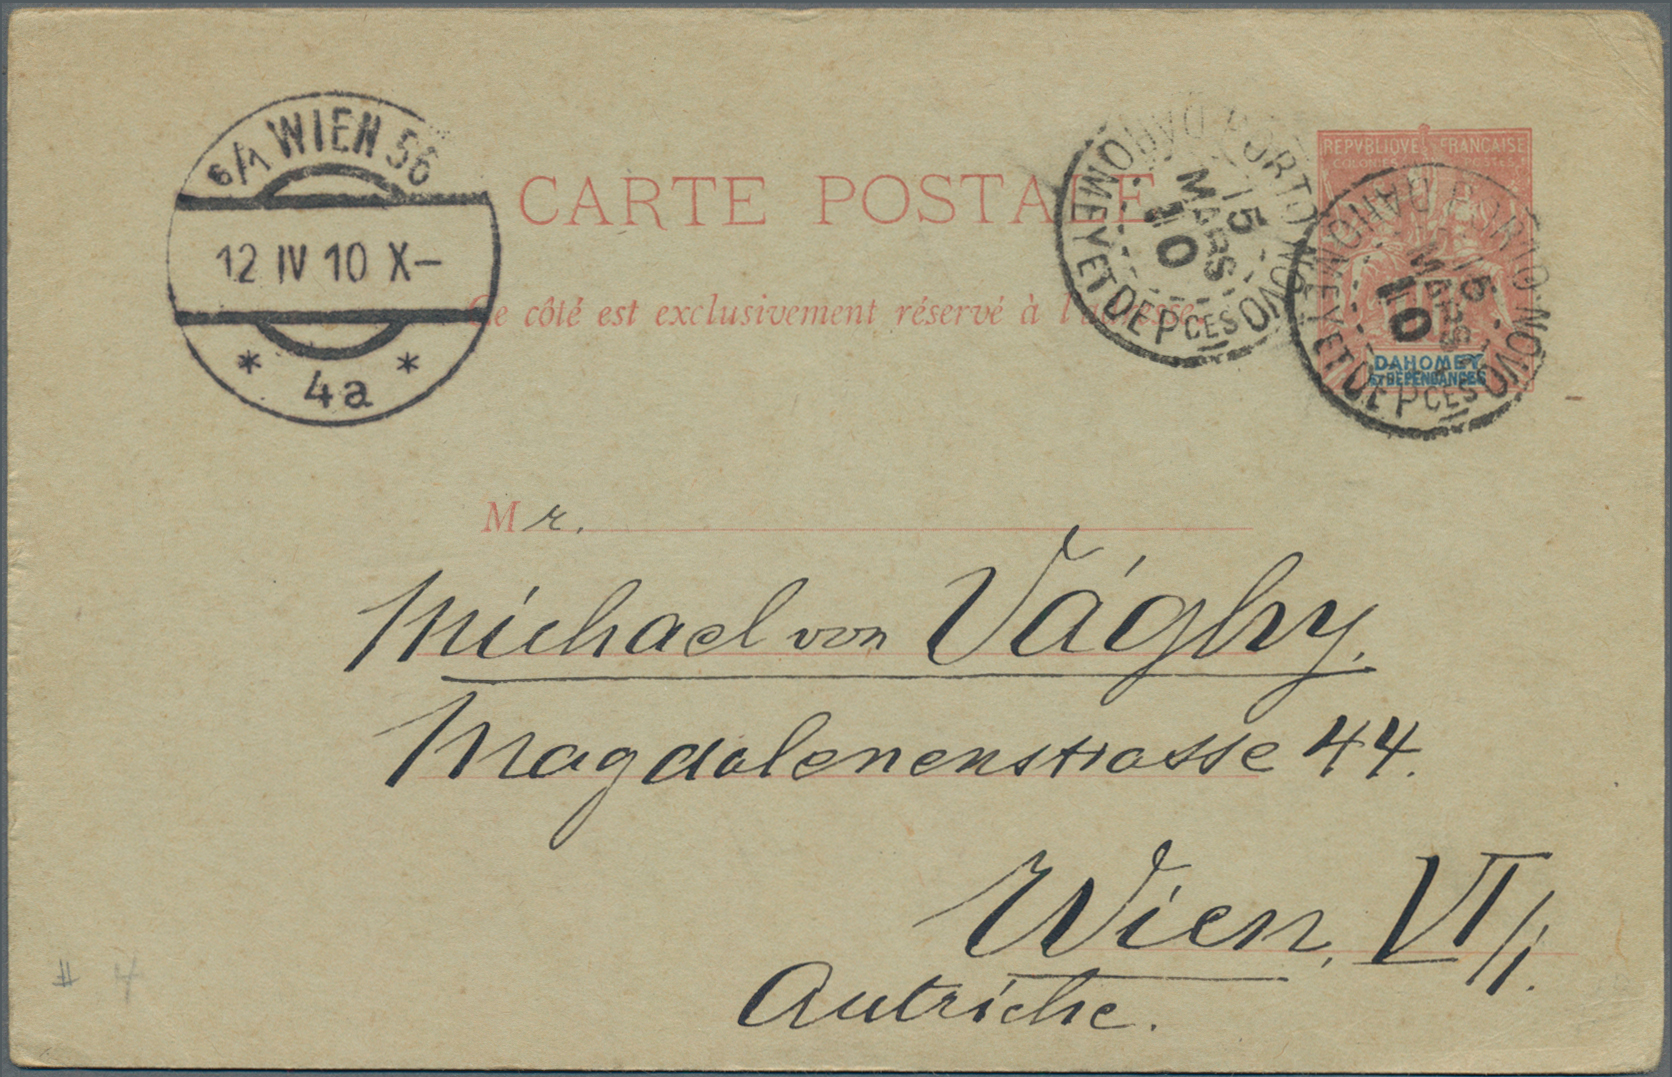 6/1 WIEN 56
12 IV 10 X–
* 4a *
CARTE POSTALE
Ce côté est exclusivement réservé à l'adresse.
PORTO-NOVO
DAHOMEY ET DEPCES
15
MARS
10
REPVBLIQVE FRANÇAISE
COLONIES POSTES
DAHOMEY
ET DÉPENDANCES
PORTO-NOVO
DAHOMEY ET DEPCES
15
MARS
10
Mr.
Michael von Vághy,
Magdalenenstrasse 44.
Wien, VI/1.
Autriche.